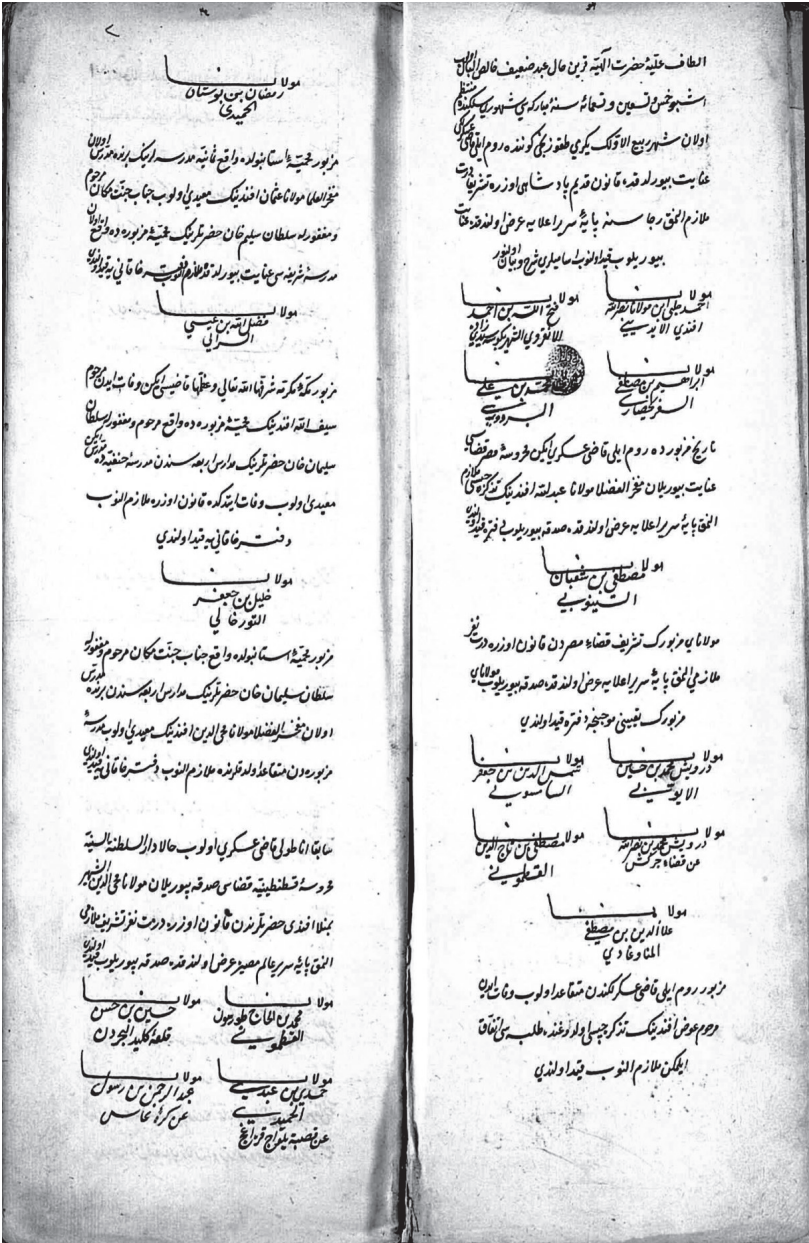 الطاف عليهٔ حضرت الهيه قرين حال عبد ضعيف اولوب
اشبو خمس و تسعين و تسعمائه سنهٔ مباركه‌سی شهوری
اولان شهر ربيع الاولك يكرمی طقوزنجی كوننده روم ايلی
عنايت بيورلدقده قانون قديم پادشاهی اوزره تشريفاتدن
ملازم الحق رجاسنه پايهٔ سرير اعلايه عرض اولندقده عنايت
بيوريلوب قيد اولنوب اساميلری شرح و بيان اولنور
مولانا
احمد چلبی ابن مولانا نصر الله
افندی الايدينی
مولانا
فتح الله بن احمد
الانقروی الشهير
مولانا
ابراهيم بن مصطفی
السفريحصاری
مولانا
محمد بن علی
تاريخ مزبورده روم ايلی قاضی عسكری ايكن محروسهٔ مصر قضاسی
عنايت بيوريلان فخر الفضلا مولانا عبد الله افندينك تذكره‌جيسی ملازم
الحق پايهٔ سرير اعلايه عرض اولندقده صدقه بيوريلوب دفتره قيد اولندی
مولانا
مصطفی بن شعبان
السينوبی
مولانای مزبورك تشريف قضاء مصردن قانون اوزره درت نفر
ملازمی الحق پايهٔ سرير اعلايه عرض اولندقده صدقه بيوريلوب مولانای
مزبورك تعيينی موجبنجه دفتره قيد اولندی
مولانا
درويش محمد بن حسين
الايوبی
مولانا
شمس الدين بن جعفر
السامسونی
مولانا
درويش محمد بن نصر الله
عن قضاء جركش
مولانا
مصطفی بن تاج الدين
القسطمونی
مولانا
علاء الدين بن مصطفی
المناوغادی
مزبور روم ايلی قاضی عسكرلكندن متقاعد اولوب وفات ايدن
مرحوم عوض افندينك تذكره‌جيسی اولدوغنده طلبه‌سی اتفاق
ايلمكن ملازم النوب قيد اولندی
مولانا
رمضان بن بوستان
الحميدی
مزبور محميهٔ استانبولده واقع ثمانيه مدرسه‌لرينك برنده مدرس اولان
فخر العلما مولانا عثمان افندينك معيدی اولوب جناب جنت مكان مرحوم
و مغفور له سلطان سليم خان حضرتلرينك محميهٔ مزبوره‌ده واقع اولان
مدرسهٔ شريفه‌سی عنايت بيورلدقده ملازم النوب دفتر خاقانی‌يه قيد اولندی
مولانا
فضل الله بن عيسی
السرايی
مزبور مكهٔ مكرمه شرفها الله تعالی و عظمها قاضيسی ايكن وفات ايدن مرحوم
سيف الله افندينك محميهٔ مزبوره‌ده واقع مرحوم و مغفور له سلطان
سليمان خان حضرتلرينك مدارس اربعه سندن مدرسهٔ حنفيه‌ده
معيدی اولوب وفات ايتدكده قانون اوزره ملازم النوب
دفتر خاقانی‌يه قيد اولندی
مولانا
خليل بن جعفر
التورخالی
مزبور محميهٔ استانبولده واقع جناب جنت مكان مرحوم و مغفور له
سلطان سليمان خان حضرتلرينك مدارس اربعه سندن برنده مدرس
اولان مفخر الفضلا مولانا محی الدين افندينك معيدی اولوب مدرسهٔ
مزبوره‌دن متقاعد اولدقلرنده ملازم النوب دفتر خاقانی‌يه قيد اولندی
سابقا اناطولی قاضی عسكری اولوب حالا دار السلطنة السنيه
محروسهٔ قسطنطينيه قضاسی صدقه بيوريلان مولانا محی الدين الشهير
بمنلا افندی حضرتلرندن قانون اوزره درت نفر تشريف ملازمی
الحق پايهٔ سرير عالم مصيره عرض اولندقده صدقه بيوريلوب قيد اولندی
مولانا
محمد بن الحاج طورسون
القسطمونی
مولانا
حسين بن حسن
قلعهٔ كليد البحردن
مولانا
حمدی بن عبدی
الحميدی
عن قصبهٔ يلواج قره‌اغاج
مولانا
عبد الرحمن بن رسول
عن كرهٔ نحاس